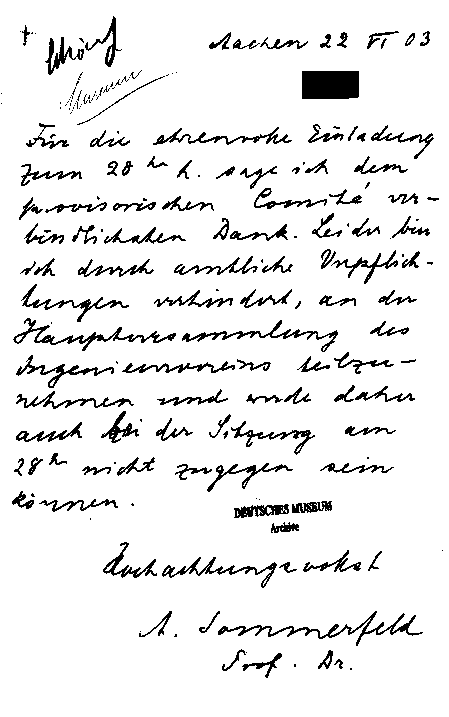 Aachen 22 VI 03
Museum
Für die ehrenvolle Einladung
zum 28ten h. sage ich dem
provisorischen Comité ver-
bindlichsten Dank. Leider bin
ich durch amtliche Verpflich-
tungen verhindert, an der
Hauptversammlung des
Ingenieurvereins teilzu-
nehmen und werde daher
auch bei der Sitzung am
28ten nicht zugegen sein
können.
DEUTSCHES MUSEUM
Archive
Hochachtungsvollst
A. Sommerfeld
Prof. Dr.